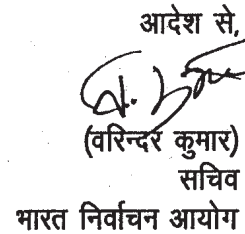 आदेश से,
(वरिन्दर कुमार)
सचिव
भारत निर्वाचन आयोग